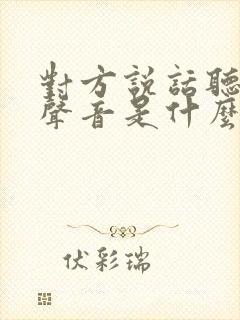 對方說話聽
聲音是什麼
伏彩瑞